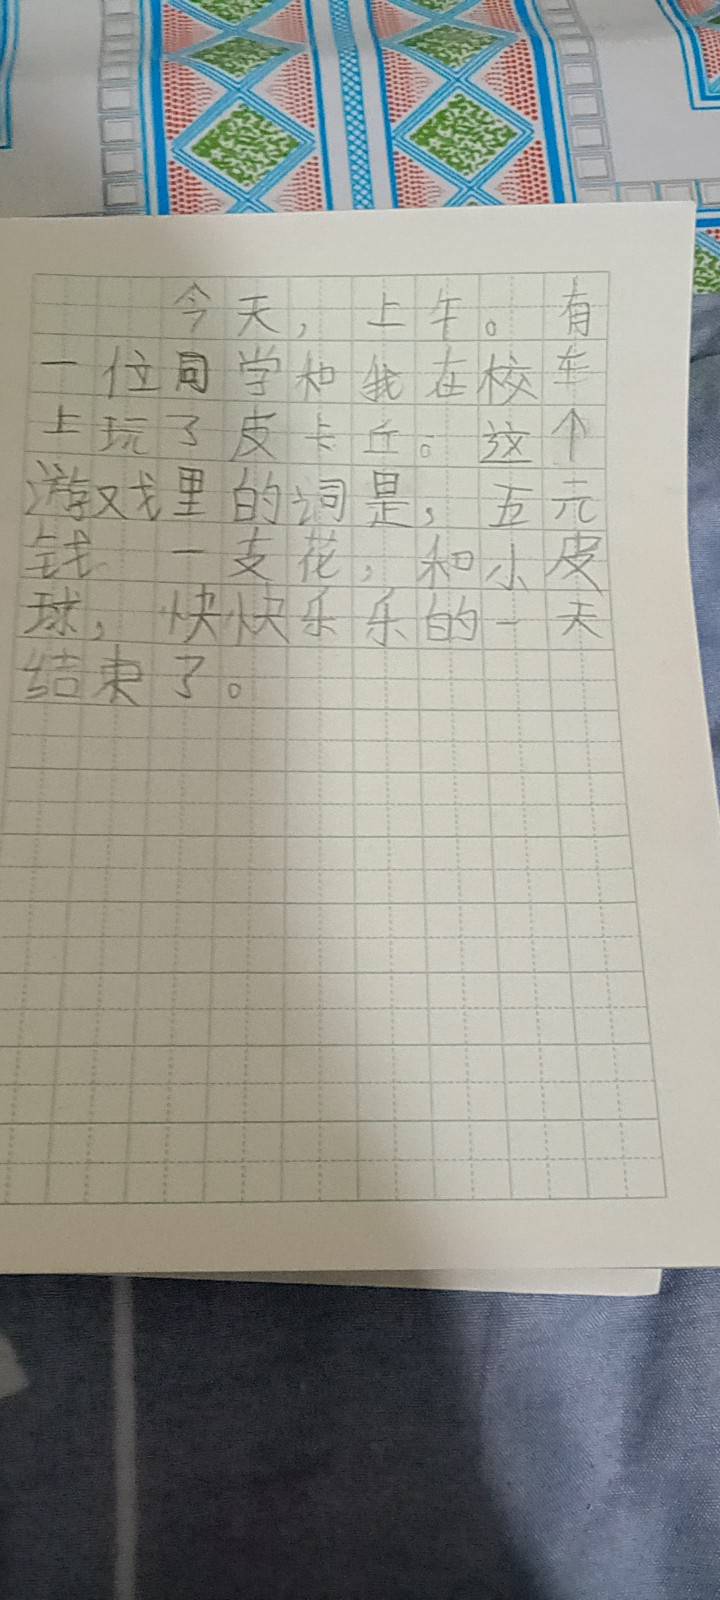 今天，上午。有
一位同学和我在校车
上玩了皮卡丘。这个
游戏里的词是，五元
钱 一支花，和小皮
球，快快乐乐的一天
结束了。